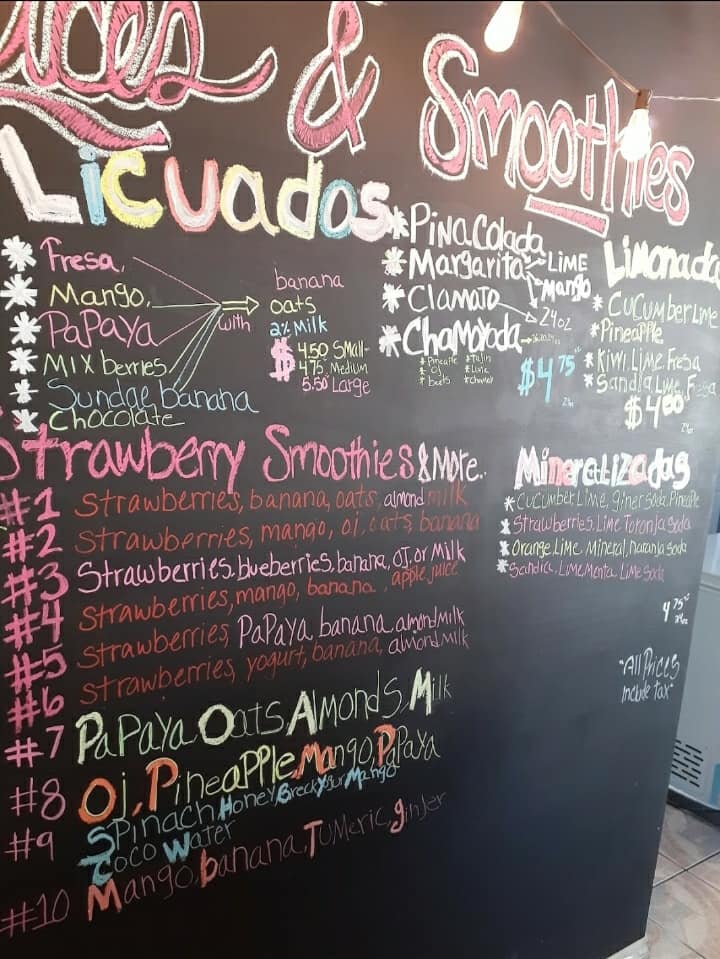 & Smoothies
Licuados
* Fresa,
* Mango,
* PaPaya
* MIX berries
* Sundae banana
* Chocolate
with
banana
oats
2% Milk
$ 4.50 Small-
4.75 Medium
5.50 Large
* PiNa Colada
* Margarita LIME
Mango
* Clamato
24oz
* Chamoyada
* Pineaple
* OJ
* Tajin
* Lime
* Chamoy
$4 75
Limonada
* CUCUMber Lime
* Pineapple
* KIWI. Lime Fresa
* Sandia Lime, Fresa
$4 00
Strawberry Smoothies & More.
#1 Strawberries, banana, oats, almond milk
#2 Strawberries, mango, oj, oats, banana
#3 Strawberries. blueberries. banana, OJ. or Milk
#4 Strawberries, mango, banana, apple juice
#5 Strawberries, PaPaya, banana, almond milk
#6 Strawberries, yogurt, banana, almond milk
#7 PaPaya Oats Almonds, Milk
#8 Oj, Pineapple, Mango, PaPaya
#9 Spinach Honey Mango
Coco Water
#10 Mango, banana, Tumeric, ginjer
Mineralizadas
* CUCUMber Lime, giner Soda, Pineapple
* Strawberries, Lime Toronja Soda
* Orange Lime Mineral, naranja Soda
* Sandia, Lime, Menta Lime Soda
4 75
"All Prices
include tax"